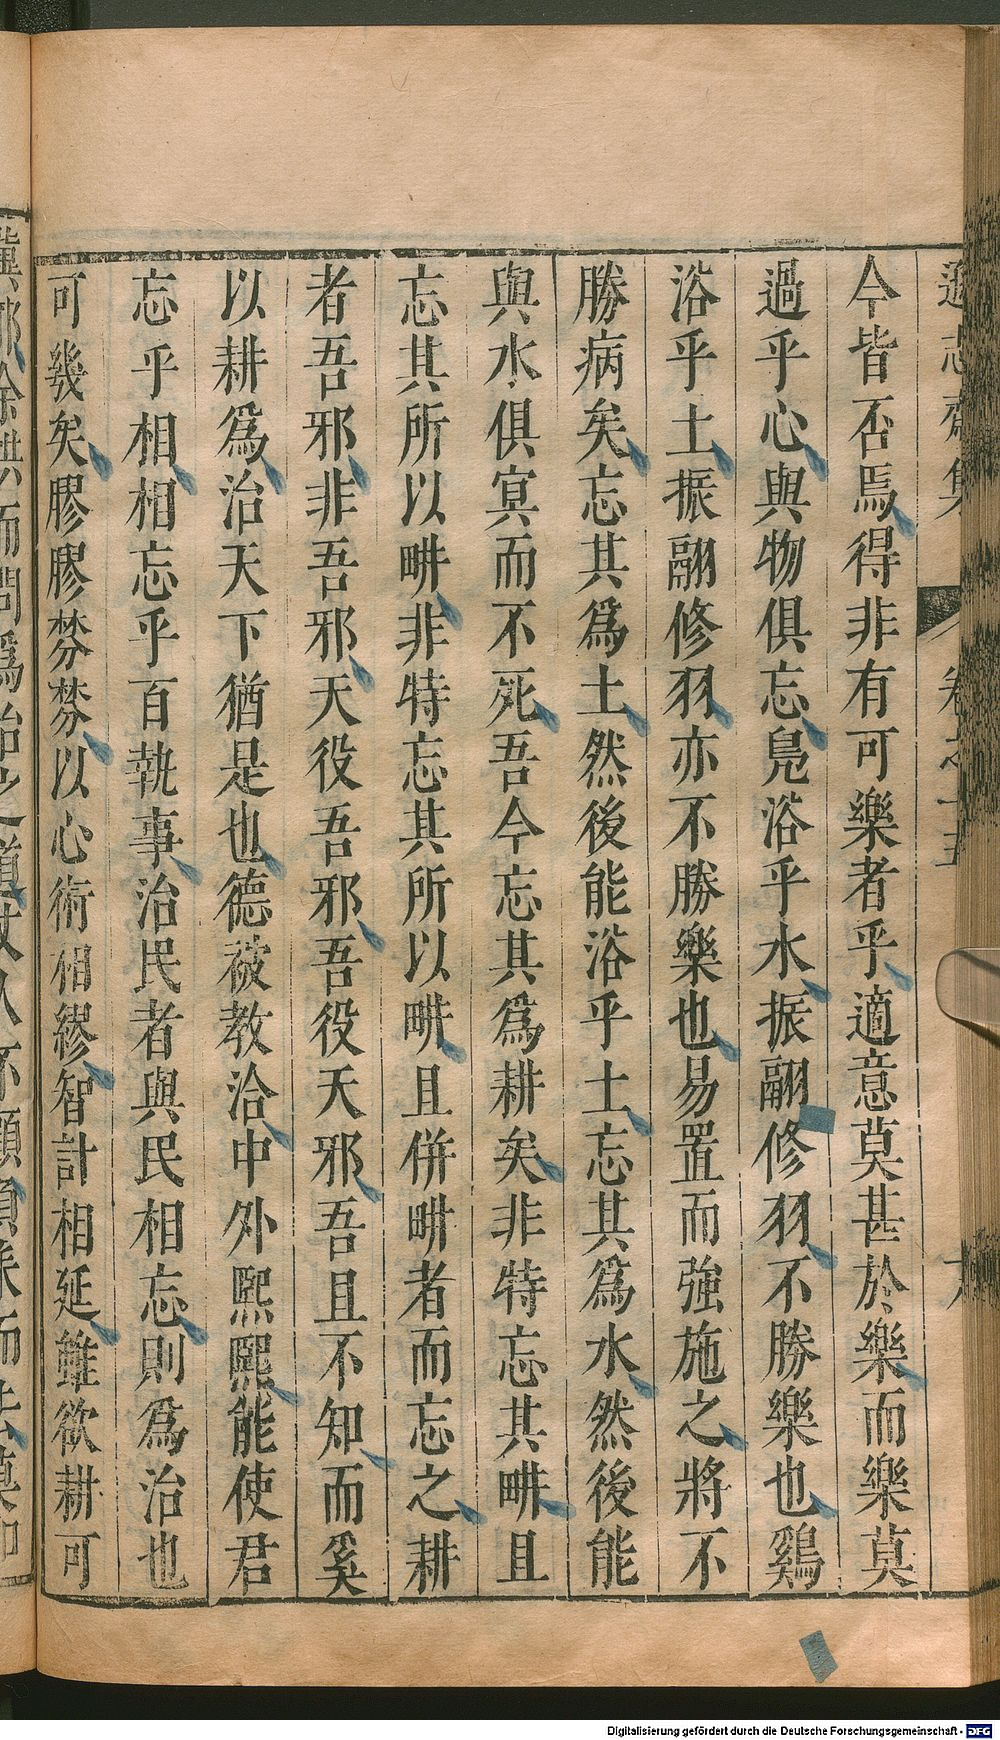 遜志齋集 卷之十五
今皆否焉得非有可樂者乎適意莫甚於樂而樂莫
過乎心與物俱忘鳧浴乎水振翮修羽不勝樂也鷄
浴乎土振翮修羽亦不勝樂也易置而強施之將不
勝病矣忘其爲土然後能浴乎土忘其爲水然後能
與水俱冥而不死吾今忘其爲耕矣非特忘其畊且
忘其所以畊非特忘其所以畊且併畊者而忘之耕
者吾邪非吾邪天役吾邪吾役天邪吾且不知而奚
以耕爲治天下猶是也德被教洽中外熙熙能使君
忘乎相相忘乎百執事治民者與民相忘則爲治也
可幾矣膠膠棼棼以心術相繆智計相延雖欲耕可
Digitalisierung gefördert durch die Deutsche Forschungsgemeinschaft - DFG